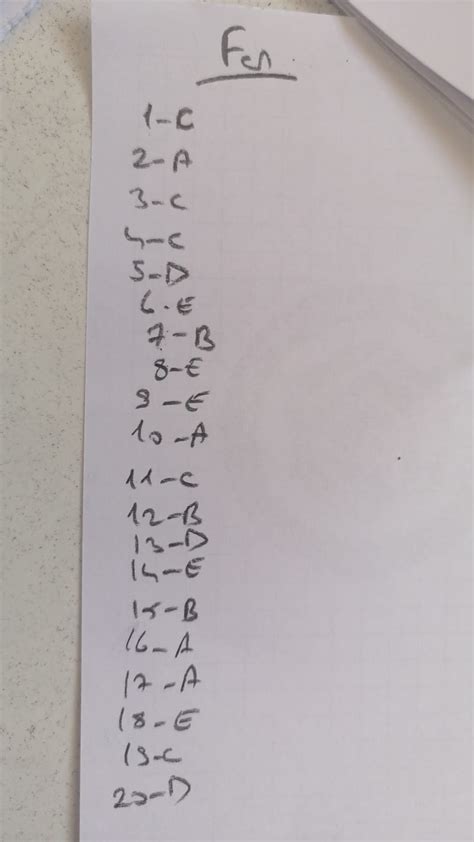 Fen
1-C
2-A
3-C
4-C
5-D
6-E
7-B
8-E
9-E
10-A
11-C
12-B
13-D
14-E
15-B
16-A
17-A
18-E
19-C
20-D